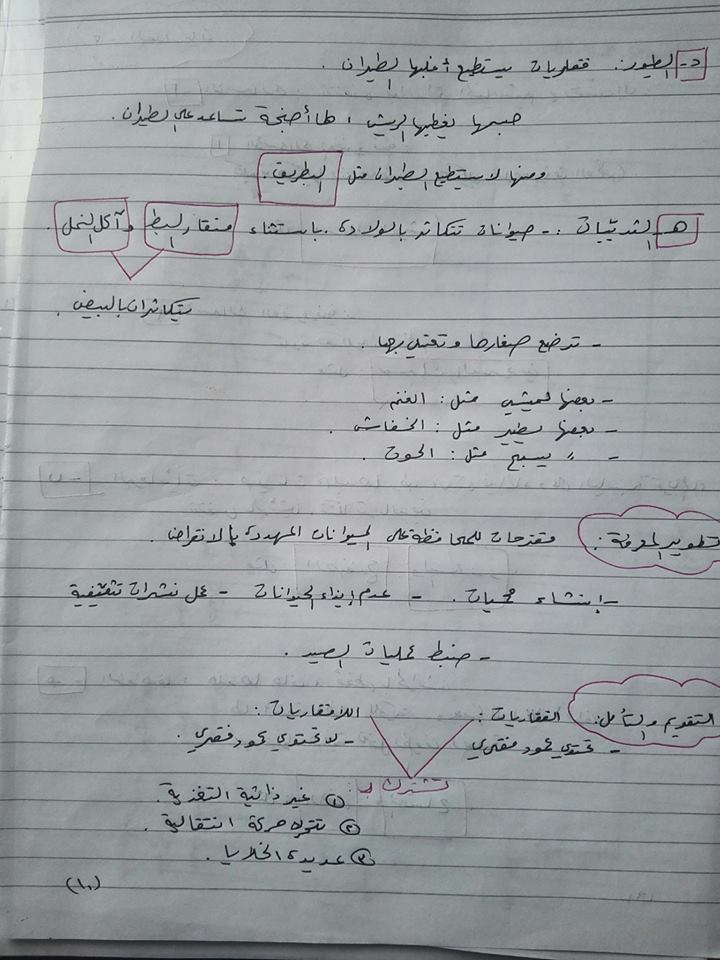 د- الطيور: فقاريات يستطيع أغلبها الطيران.
جسمها يغطيها الريش، لها أجنحة تساعد على الطيران.
ومنها لا يستطيع الطيران مثل البطريق.
هـ- الثدييات :- حيوانات تتكاثر بالولادة. باستثناء منقار البط وآكل النمل.
يتكاثران بالبيض.
- ترضع صغارها وتعتني بها.
- بعضها يمشي مثل: الغنم
- بعضها يطير مثل: الخفاش.
- " يسبح مثل: الحوت.
تطوير المعرفة: مقترحات للمحافظة على الحيوانات المهددة بالانقراض.
- إنشاء محميات. - عدم إيذاء الحيوانات - عمل نشرات تثقيفية
- ضبط عمليات الصيد.
التقويم والتأمل: الفقاريات: اللافقاريات:
- تحتوي عمود فقري - لا تحتوي عمود فقري.
تشترك بـ:
① غير ذاتية التغذية.
② تتحرك حركة انتقالية.
③ عديدة الخلايا.
(١٠)